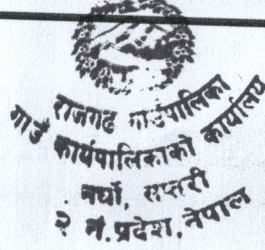 राजगढ गाउँपालिका
गाउँ कार्यपालिकाको कार्यालय
नघाँ, सप्तरी
२ नं. प्रदेश, नेपाल